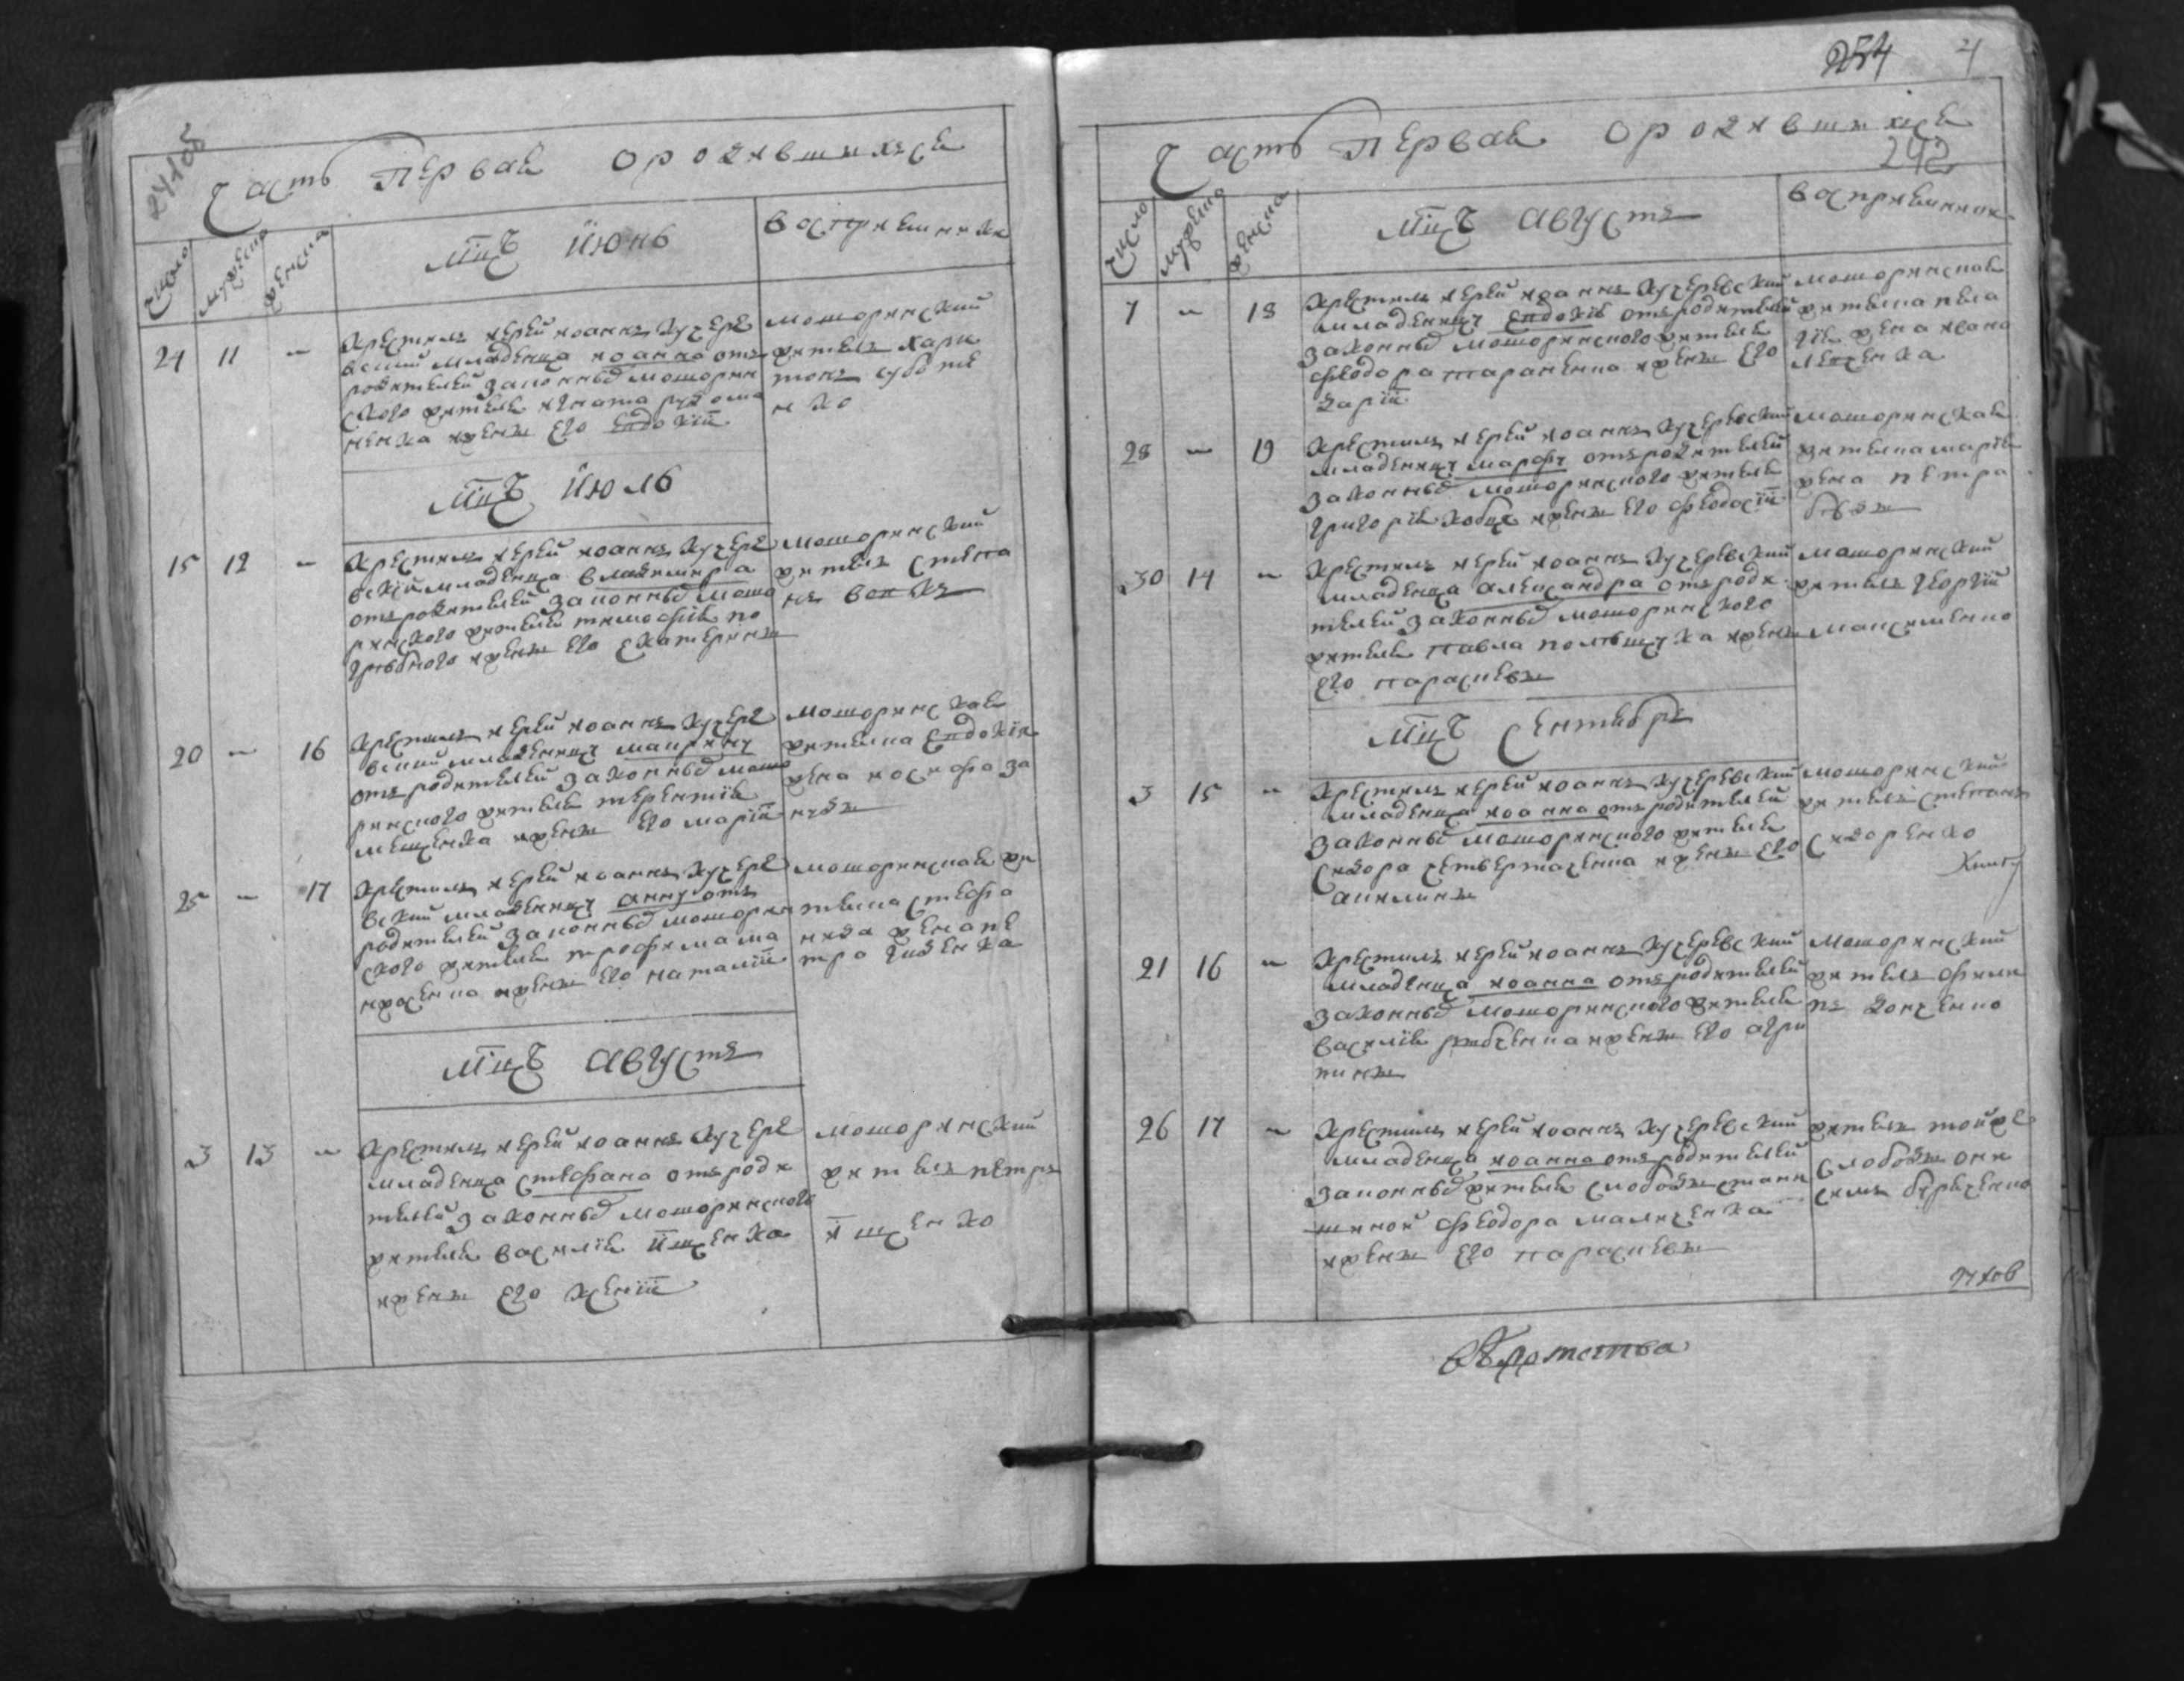 Часть первая о родившихся
число мужеска женска
Мцъ Июнь
восприемники
24 11 –
Крестилъ иерей иоаннъ кучере
вский младенца иоанна отъ
родителей законныхъ моторин
ского жителя игната
ненка и жены его евдокіи
моторинский
житель хари
тонъ суботе
нко
Мцъ Июль
15 12 –
Крестилъ иерей иоаннъ кучере
вский младенца владимира
отъ родителей законныхъ мото
ринского жителя тимофія по
грѣбного и жены его екатерины
моторинский
житель степа
нъ
20 – 16
Крестилъ иерей иоаннъ кучере
вский младеницу макрину
отъ родителей законныхъ мото
ринского жителя терентія
мещенка и жены его маріи
моторинская
жителка евдокія
жена иосифа за
25 – 17
Крестилъ иерей иоаннъ кучере
вский младеницу анну отъ
родителей законныхъ моторин
ского жителя трофима
и жены его наталіи
моторинская жи
телка стефа
нида жена пе
тра
Мцъ Августъ
3 13 –
Крестилъ иерей иоаннъ кучере
младенца стефана отъ роди
телей законныхъ моторинского
жителя василія Ищенка
и жены его ксеніи
моторинский
житель петръ
ищенко
254 4
Часть первая о родившихся
242
число мужеска женска
Мцъ Августъ
восприемники
7 – 18
Крестилъ иерей иоаннъ кучеревский
младеницу евдокію отъ родителей
законныхъ моторинского жителя
феодора тараненка и жены его
даріи
моторинская
жителка пела
гія жена ивана
28 – 19
Крестилъ иерей иоаннъ кучеревский
младеницу марфу отъ родителей
законныхъ моторинского жителя
григорія и жены его феодосіи
моторинская
жителка марія
жена петра
30 14 –
Крестилъ иерей иоаннъ кучеревский
младенца александра отъ роди
телей законныхъ моторинского
жителя павла и жены
его параскевы
моторинский
житель георгій
максименко
Мцъ Сентябрь
3 15 –
Крестилъ иерей иоаннъ кучеревский
младенца иоанна отъ родителей
законныхъ моторинского жителя
сидора четвертаченка и жены его
акилины
моторинский
житель степанъ
сидоренко
21 16 –
Крестилъ иерей иоаннъ кучеревский
младенца иоанна отъ родителей
законныхъ моторинского жителя
василія рябченка и жены его агри
пины
моторинский
житель фили
пъ донченко
26 17 –
Крестилъ иерей иоаннъ кучеревский
младенца иоанна отъ родителей
законныхъ жителя слободы
феодора
и жены его параскевы
житель той же
слободы они
симъ